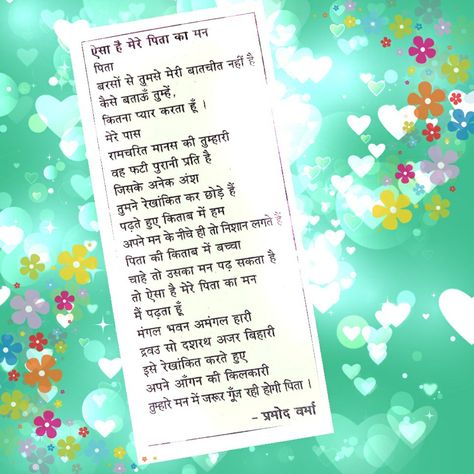 ऐसा है मेरे पिता का मन
पिता
बरसों से तुमसे मेरी बातचीत नहीं है
कैसे बताऊँ तुम्हें,
कितना प्यार करता हूँ ।
मेरे पास
रामचरित मानस की तुम्हारी
वह फटी पुरानी प्रति है
जिसके अनेक अंश
तुमने रेखांकित कर छोड़े हैं
पढ़ते हुए किताब में हम
अपने मन के नीचे ही तो निशान लगते हैं
पिता की किताब में बच्चा
चाहे तो उसका मन पढ़ सकता है
तो ऐसा है मेरे पिता का मन
मैं पढ़ता हूँ
मंगल भवन अमंगल हारी
द्रवउ सो दशरथ अजर बिहारी
इसे रेखांकित करते हुए
अपने आँगन की किलकारी
तुम्हारे मन में जरूर गूँज रही होगी पिता ।
– प्रमोद वर्मा